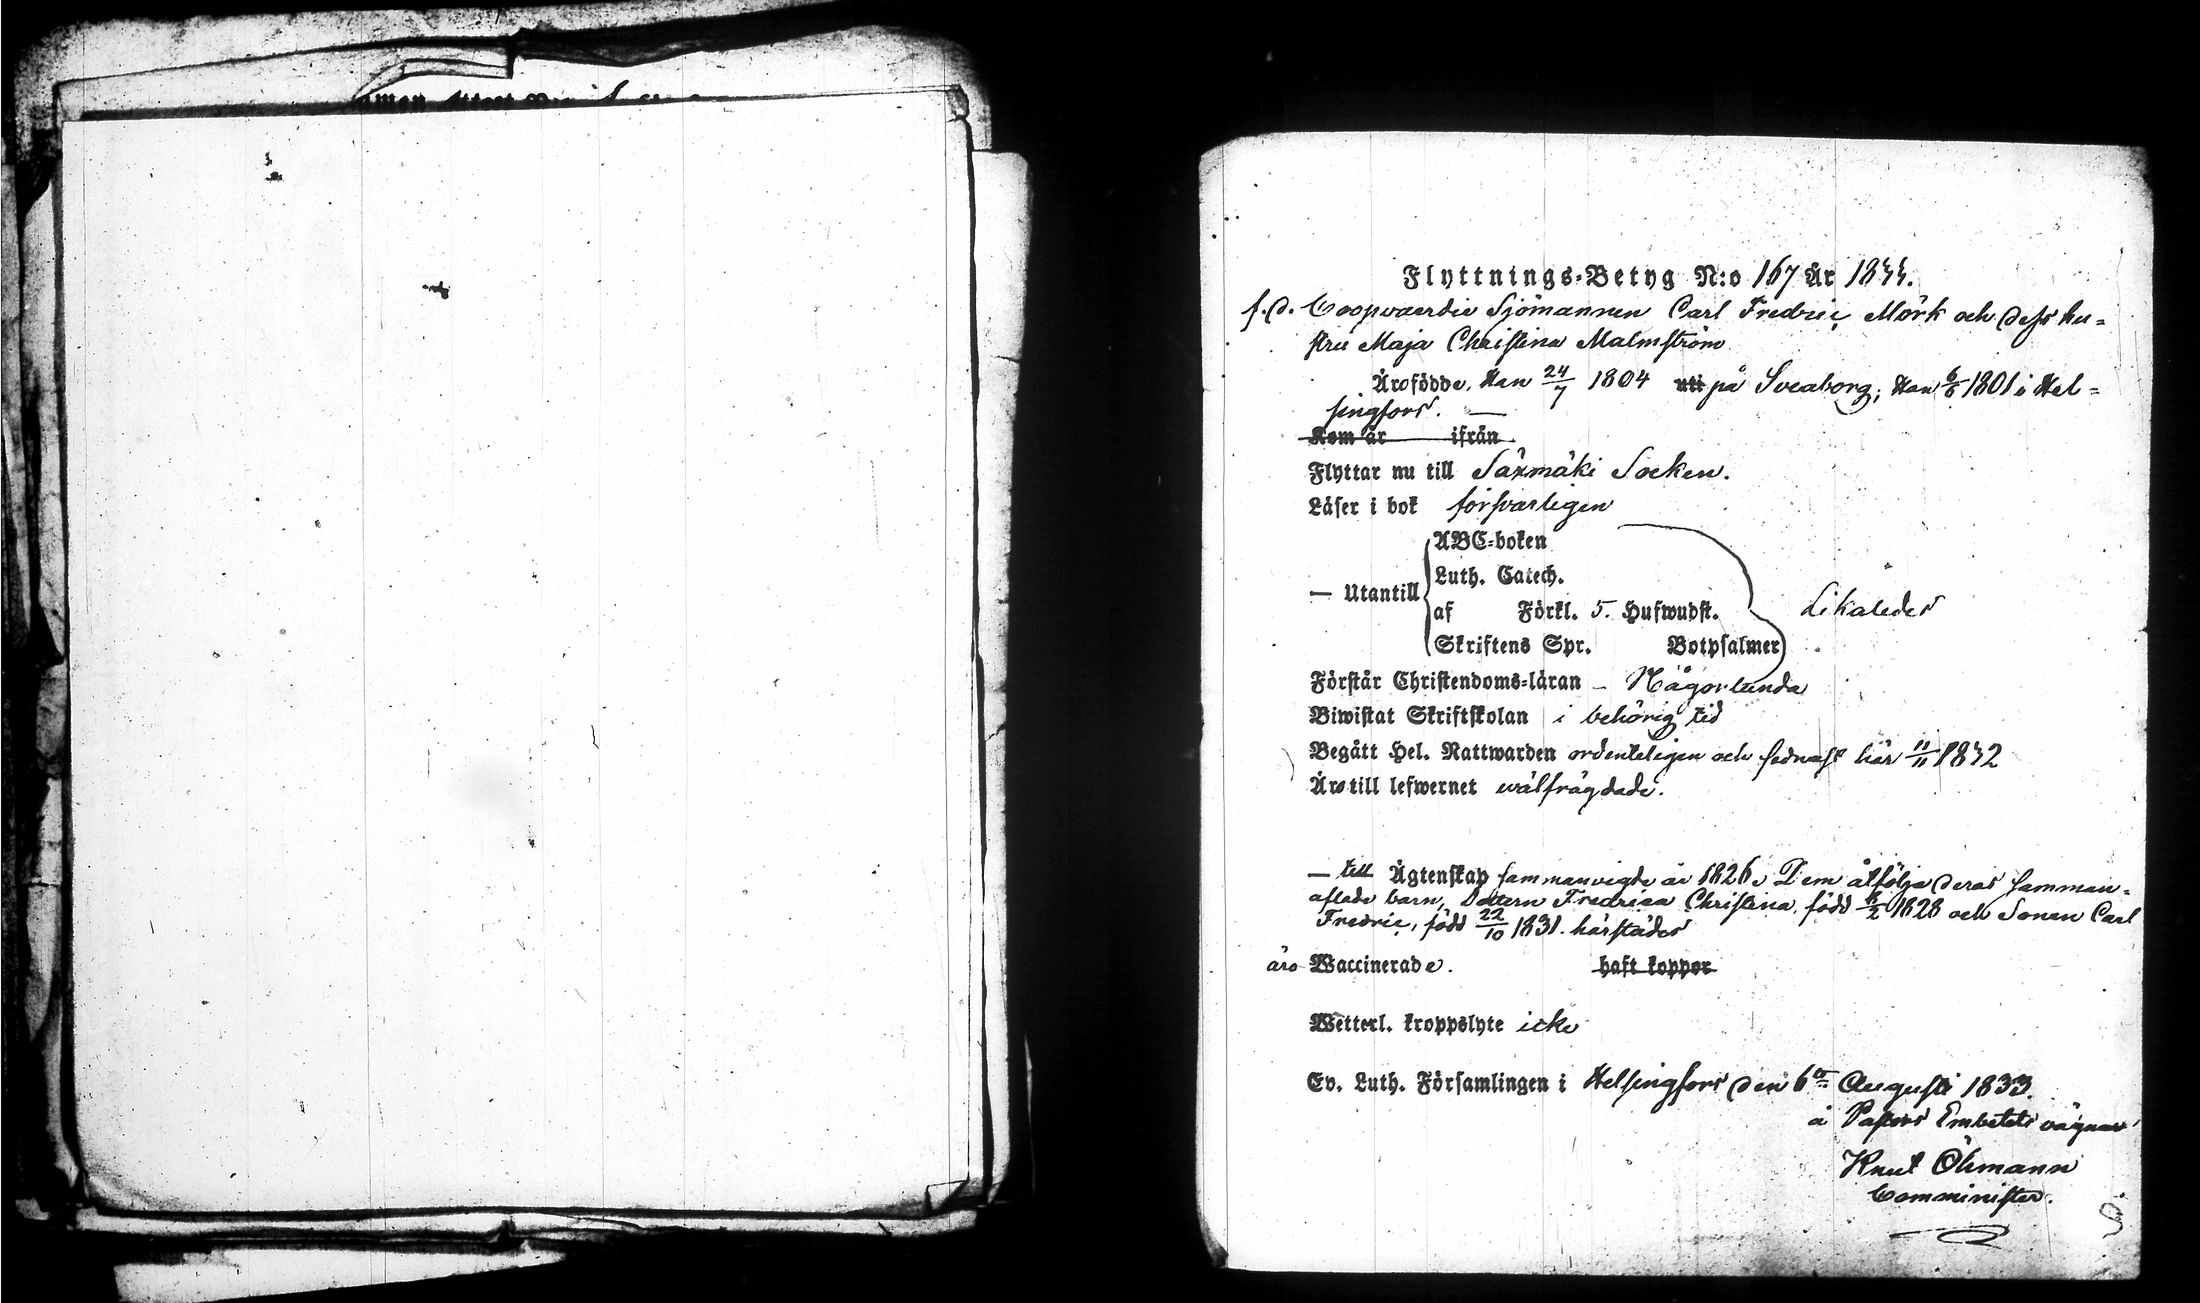 Flyttnings-Betyg N:o 167 År 1833.
f.d. Coopvaerdie Sjömannen Carl Fredric Mörk och dess hu=
stru Maja Christina Malmström
Äro födde, Han 24/7 1804 uti på Sveaborg; Hon 6/6 1801 i Hel=
singfors. —
Kom år ifrån
Flyttar nu till Säxmäki Socken.
Läser i bok försvarligen
ABC-boken
Luth. Catech.
— Utantill af Förkl. 5. Hufwudst. Likaledes
Skriftens Spr. Botpsalmer
Förstår Christendoms-läran – Någorlunda
Biwistat Skriftskolan i behörig tid
Begått Hel. Nattwarden ordenteligen och sednast här 11/11 1832
Äro till lefwernet wälfrägdade.
— till Ägtenskap sammanvigde år 1826. Dem åtfölja deras samman=
aflade barn, Dottern Fredrica Christina, född /2 1828 och Sonen Carl
Fredric, född 22/10 1831. härstädes
äro Waccinerade. haft koppor
Wetterl. kroppslyte icke
Ev. Luth. Församlingen i Helsingfors den 6te Augusti 1833.
å Pastors Embetets vägnar
Knut Öhmann
Comminister.